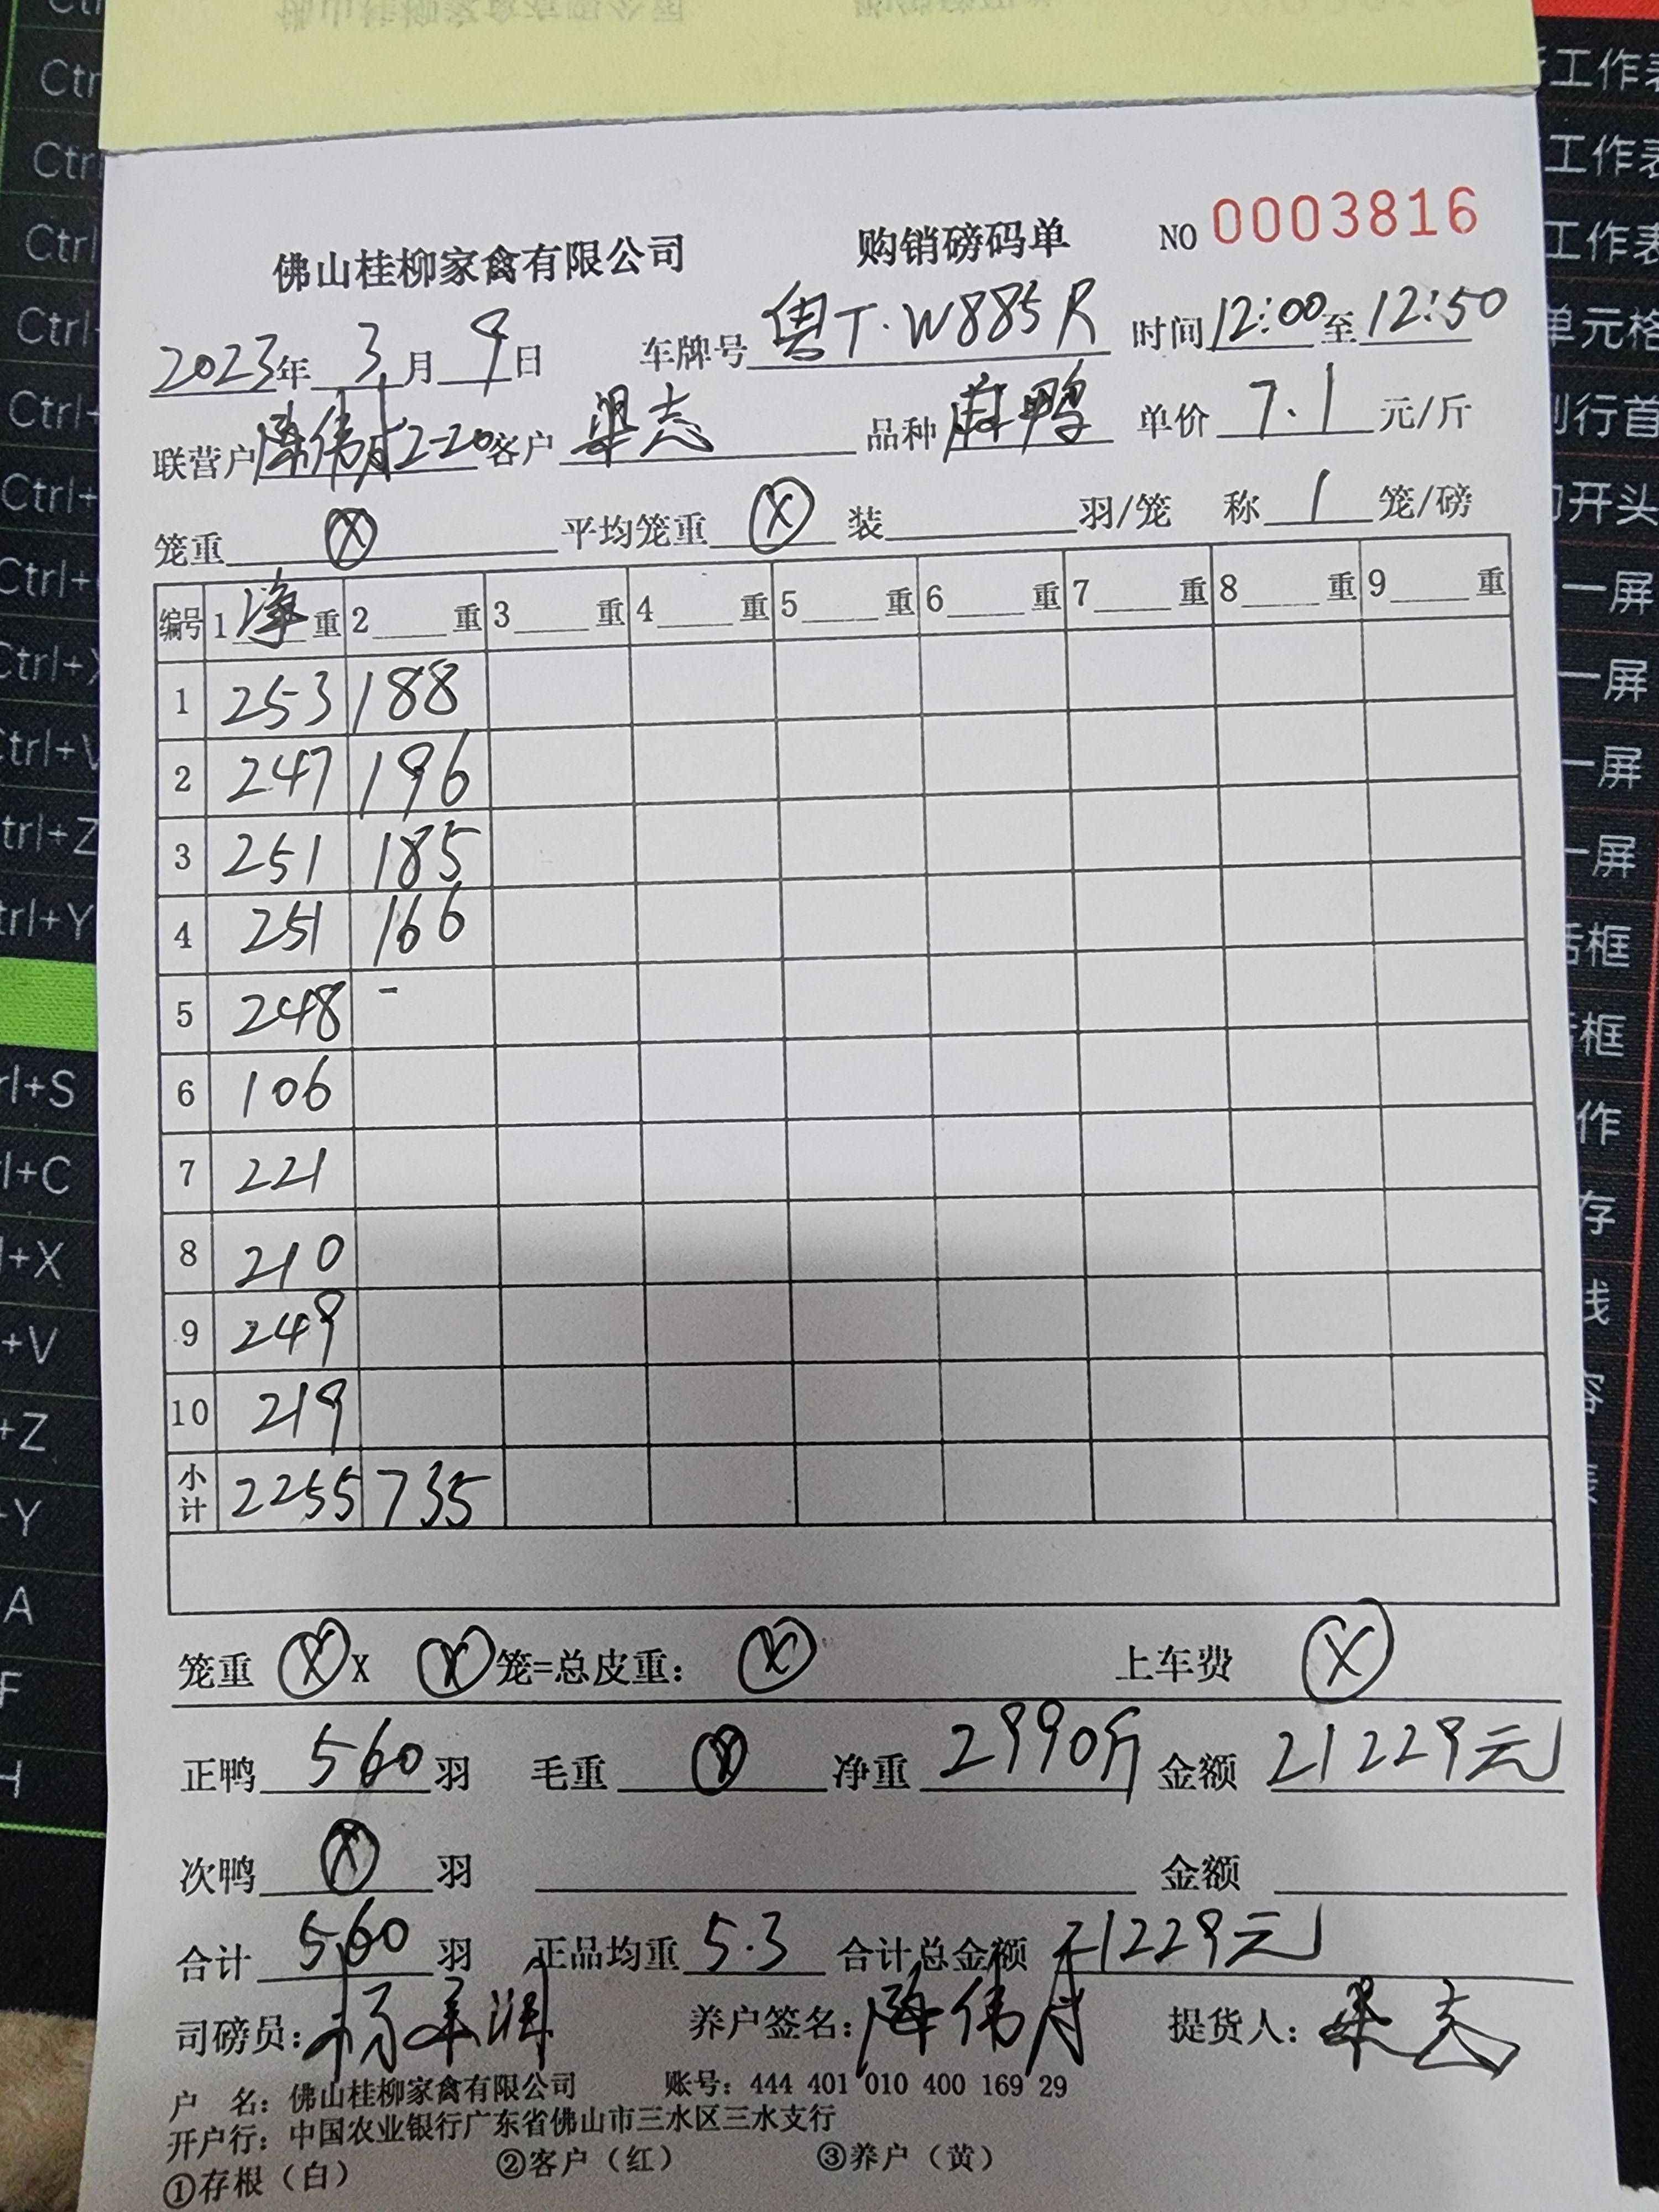 佛山桂柳家禽有限公司 购销磅码单 NO 0003816
2023年 3月 9日 车牌号 粤T·W885R 时间 12:00 至 12:50
联营户 伟 22-20 客户 梁志 品种 麻鸭 单价 7.1 元/斤
笼重 Ⓧ 平均笼重 Ⓧ 装 羽/笼 称 1 笼/磅
编号 1 净 重 2 重 3 重 4 重 5 重 6 重 7 重 8 重 9 重
1 253 188
2 247 196
3 251 185
4 251 166
5 248 -
6 106
7 221
8 210
9 249
10 219
小计 2255 735
笼重 Ⓧ X Ⓧ 笼=总皮重: Ⓧ 上车费 Ⓧ
正鸭 560 羽 毛重 Ⓧ 净重 2990斤 金额 21229元
次鸭 Ⓧ 羽 金额
合计 560 羽 正品均重 5.3 合计总金额 21229元
司磅员: 养户签名: 伟 提货人: 梁志
户 名: 佛山桂柳家禽有限公司 账号: 444 401 010 400 169 29
开户行: 中国农业银行广东省佛山市三水区三水支行
①存根（白） ②客户（红） ③养户（黄）
Ctrl+S
+C
+X
+V
+Z
+Y
A
F
H
工作表
工作表
工作表
单元格
行首
开头
一屏
一屏
一屏
一屏
框
框
作
存